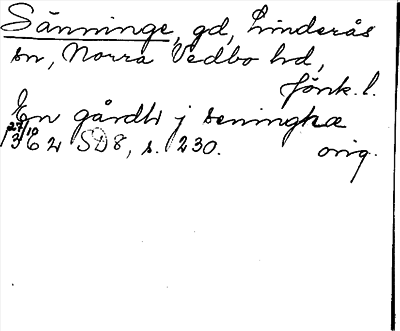 Sänninge, gd, Linderås
sn, Norra Vedbo hd,
Jönk. l.
En gårdh j seninghæ
27/10
1362 SD 8, s. 230. orig.